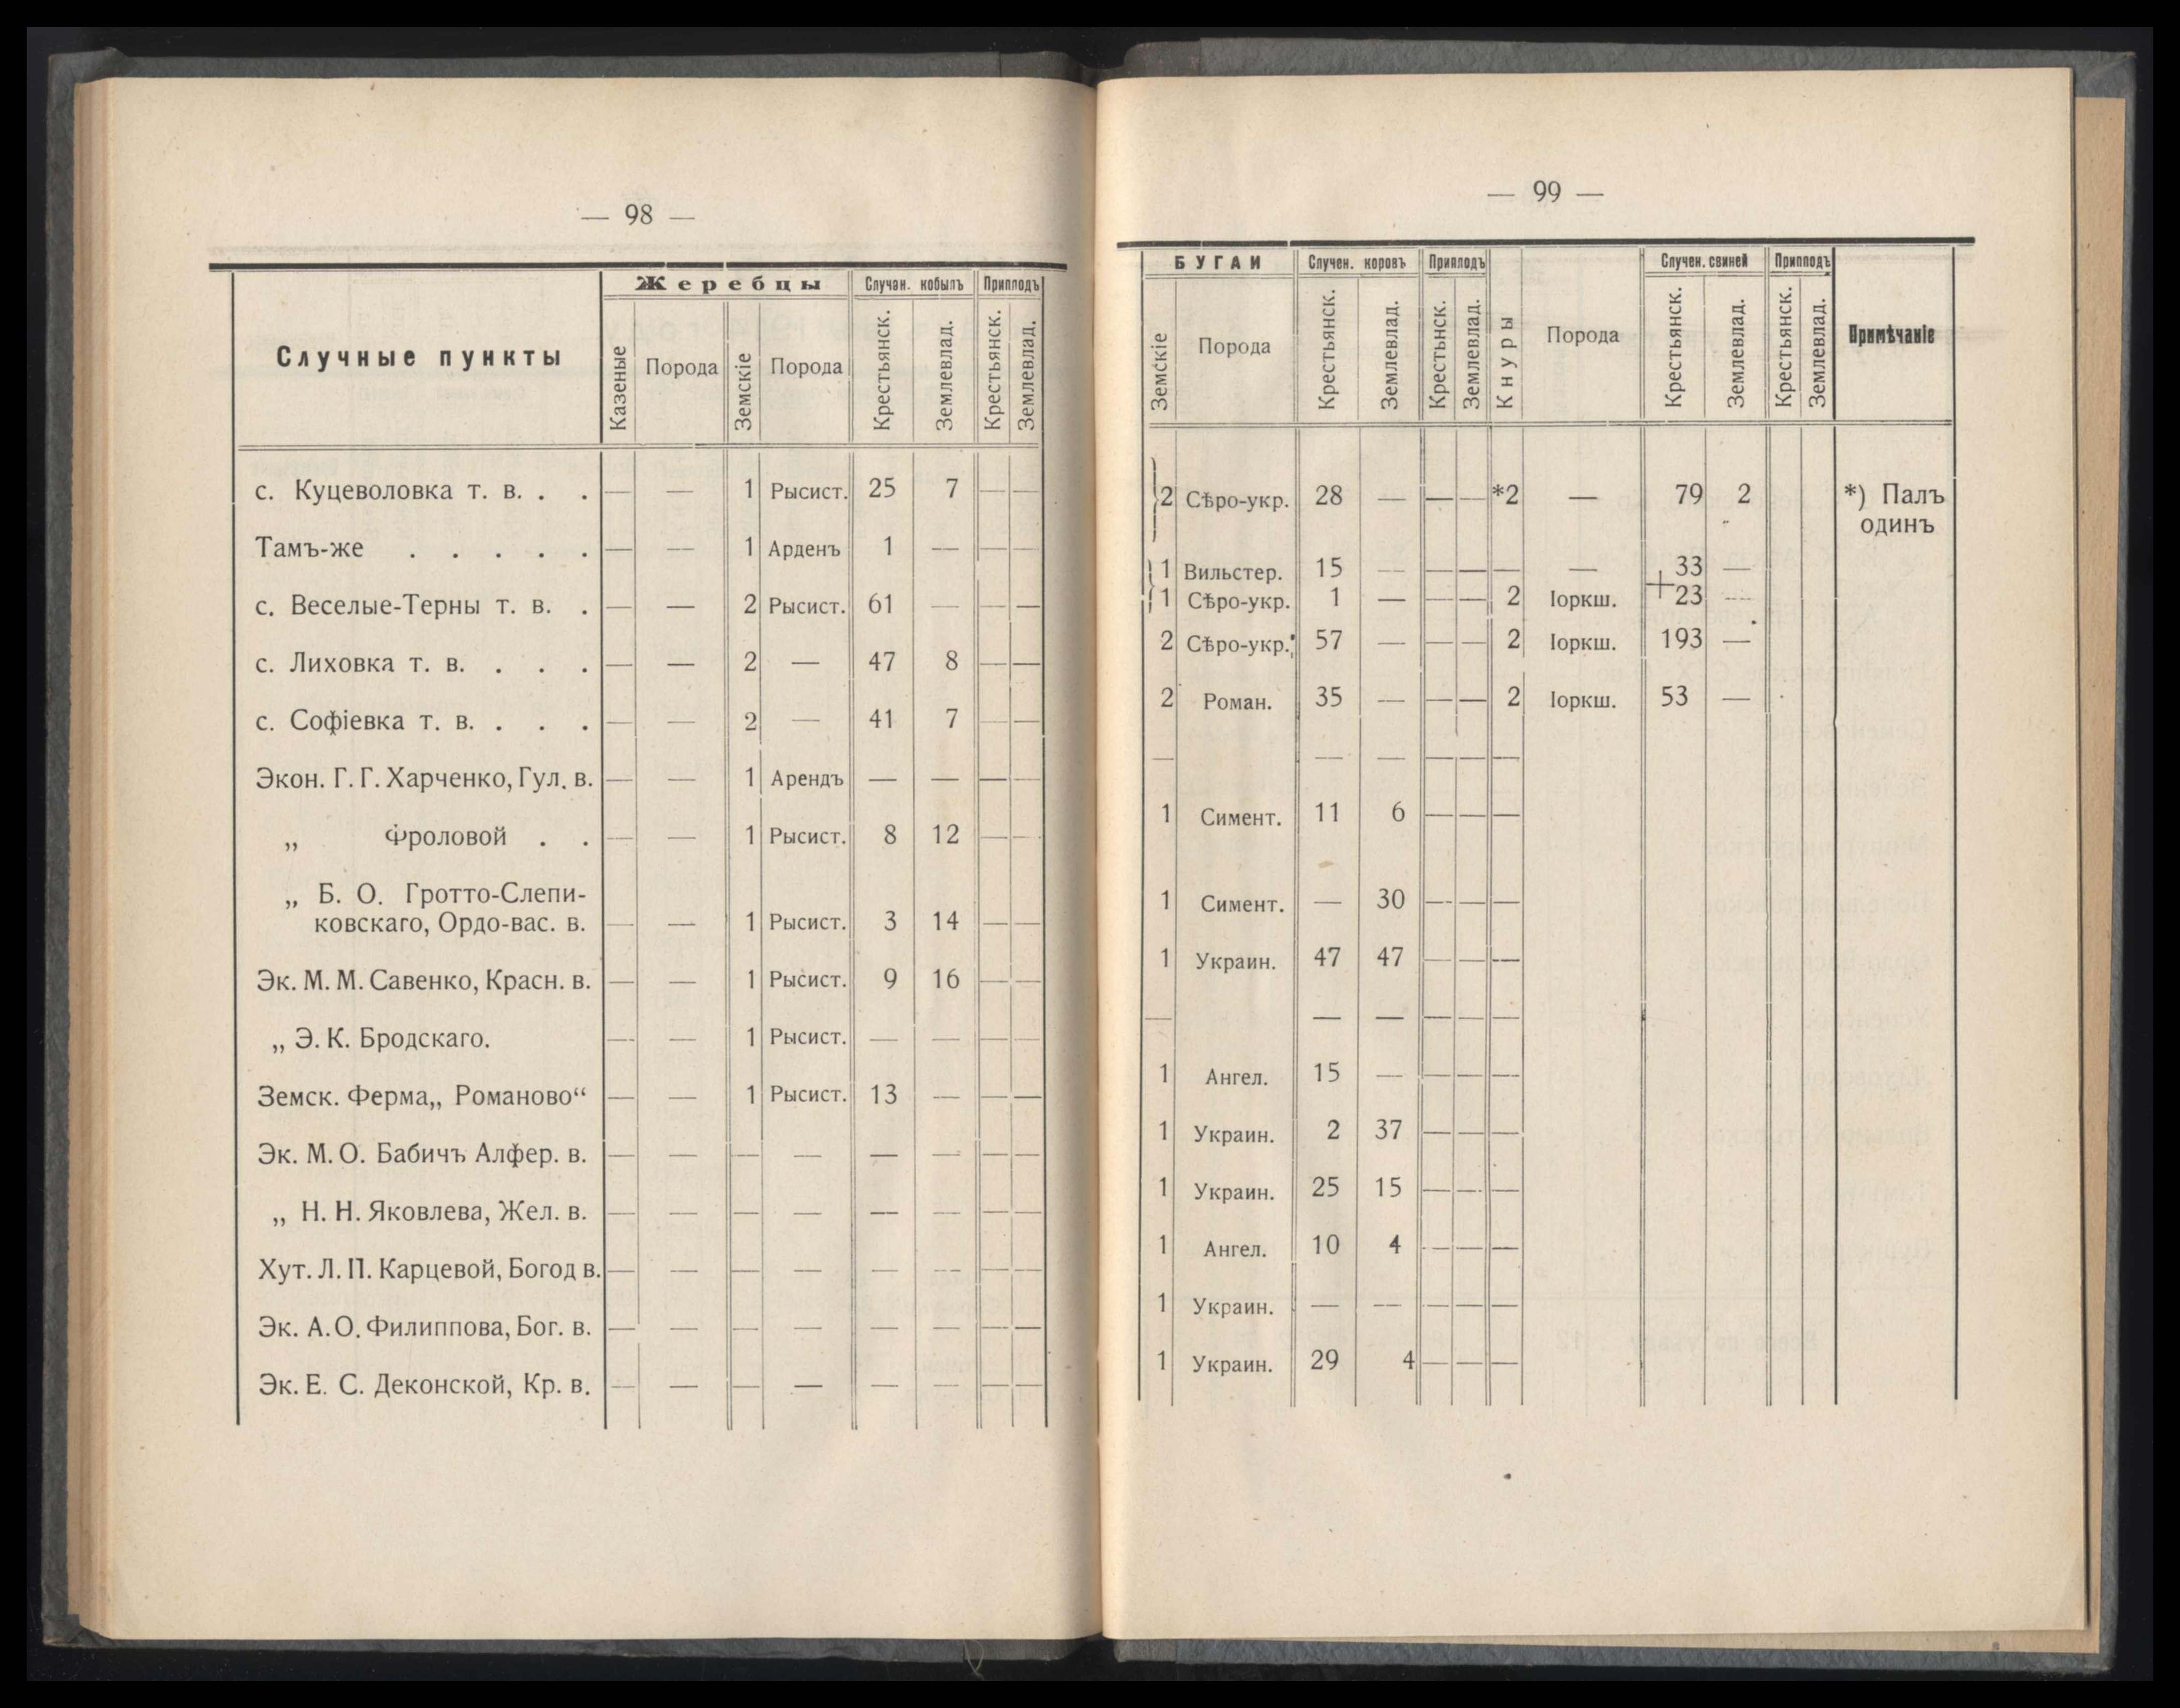 — 98 —
Случные пункты
Жеребцы
Случан. кобылъ
Приплодъ
Казеные
Порода
Земскіе
Порода
Крестьянск.
Землевлад.
Крестьянск.
Землевлад.
с. Куцеволовка т. в. . . — — 1 Рысист. 25 7 — —
Тамъ-же . . . . . — — 1 Арденъ 1 — — —
с. Веселые-Терны т. в. . — — 2 Рысист. 61 — — —
с. Лиховка т. в. . . . — — 2 — 47 8 — —
с. Софіевка т. в. . . . — — 2 — 41 7 — —
Экон. Г. Г. Харченко, Гул. в. — — 1 Арендъ — — — —
„ Фроловой . . — — 1 Рысист. 8 12 — —
„ Б. О. Гротто-Слепи-
ковскаго, Ордо-вас. в. — — 1 Рысист. 3 14 — —
Эк. М. М. Савенко, Красн. в. — — 1 Рысист. 9 16 — —
„ Э. К. Бродскаго. — — 1 Рысист. — — — —
Земск. Ферма„ Романово“ — — 1 Рысист. 13 — — —
Эк. М. О. Бабичъ Алфер. в. — — — — — — — —
„ Н. Н. Яковлева, Жел. в. — — — — — — — —
Хут. Л. П. Карцевой, Богод в. — — — — — — — —
Эк. А. О. Филиппова, Бог. в. — — — — — — — —
Эк. Е. С. Деконской, Кр. в. — — — — — — — —
— 99 —
БУГАИ
Случен. коровъ
Приплодъ
Кнуры
Порода
Случен. свиней
Приплодъ
Примѣчаніе
Земскіе
Порода
Крестьянск.
Землевлад.
Крестьнск.
Землевлад.
Крестьянск.
Землевлад.
Крестьянск.
Землевлад.
2 Сѣро-укр. 28 — — — *2 — 79 2 *) Палъ
одинъ
1 Вильстер. 15 — — — — — 33 —
1 Сѣро-укр. 1 — — — 2 Іоркш. +23 —
2 Сѣро-укр. 57 — — — 2 Іоркш. 193 —
2 Роман. 35 — — — 2 Іоркш. 53 —
— — — — —
1 Симент. 11 6 — — —
1 Симент. — 30 — — —
1 Украин. 47 47 — — —
— — — — — —
1 Ангел. 15 — — — —
1 Украин. 2 37 — — —
1 Украин. 25 15 — — —
1 Ангел. 10 4 — — —
1 Украин. — — — — —
1 Украин. 29 4 — — —